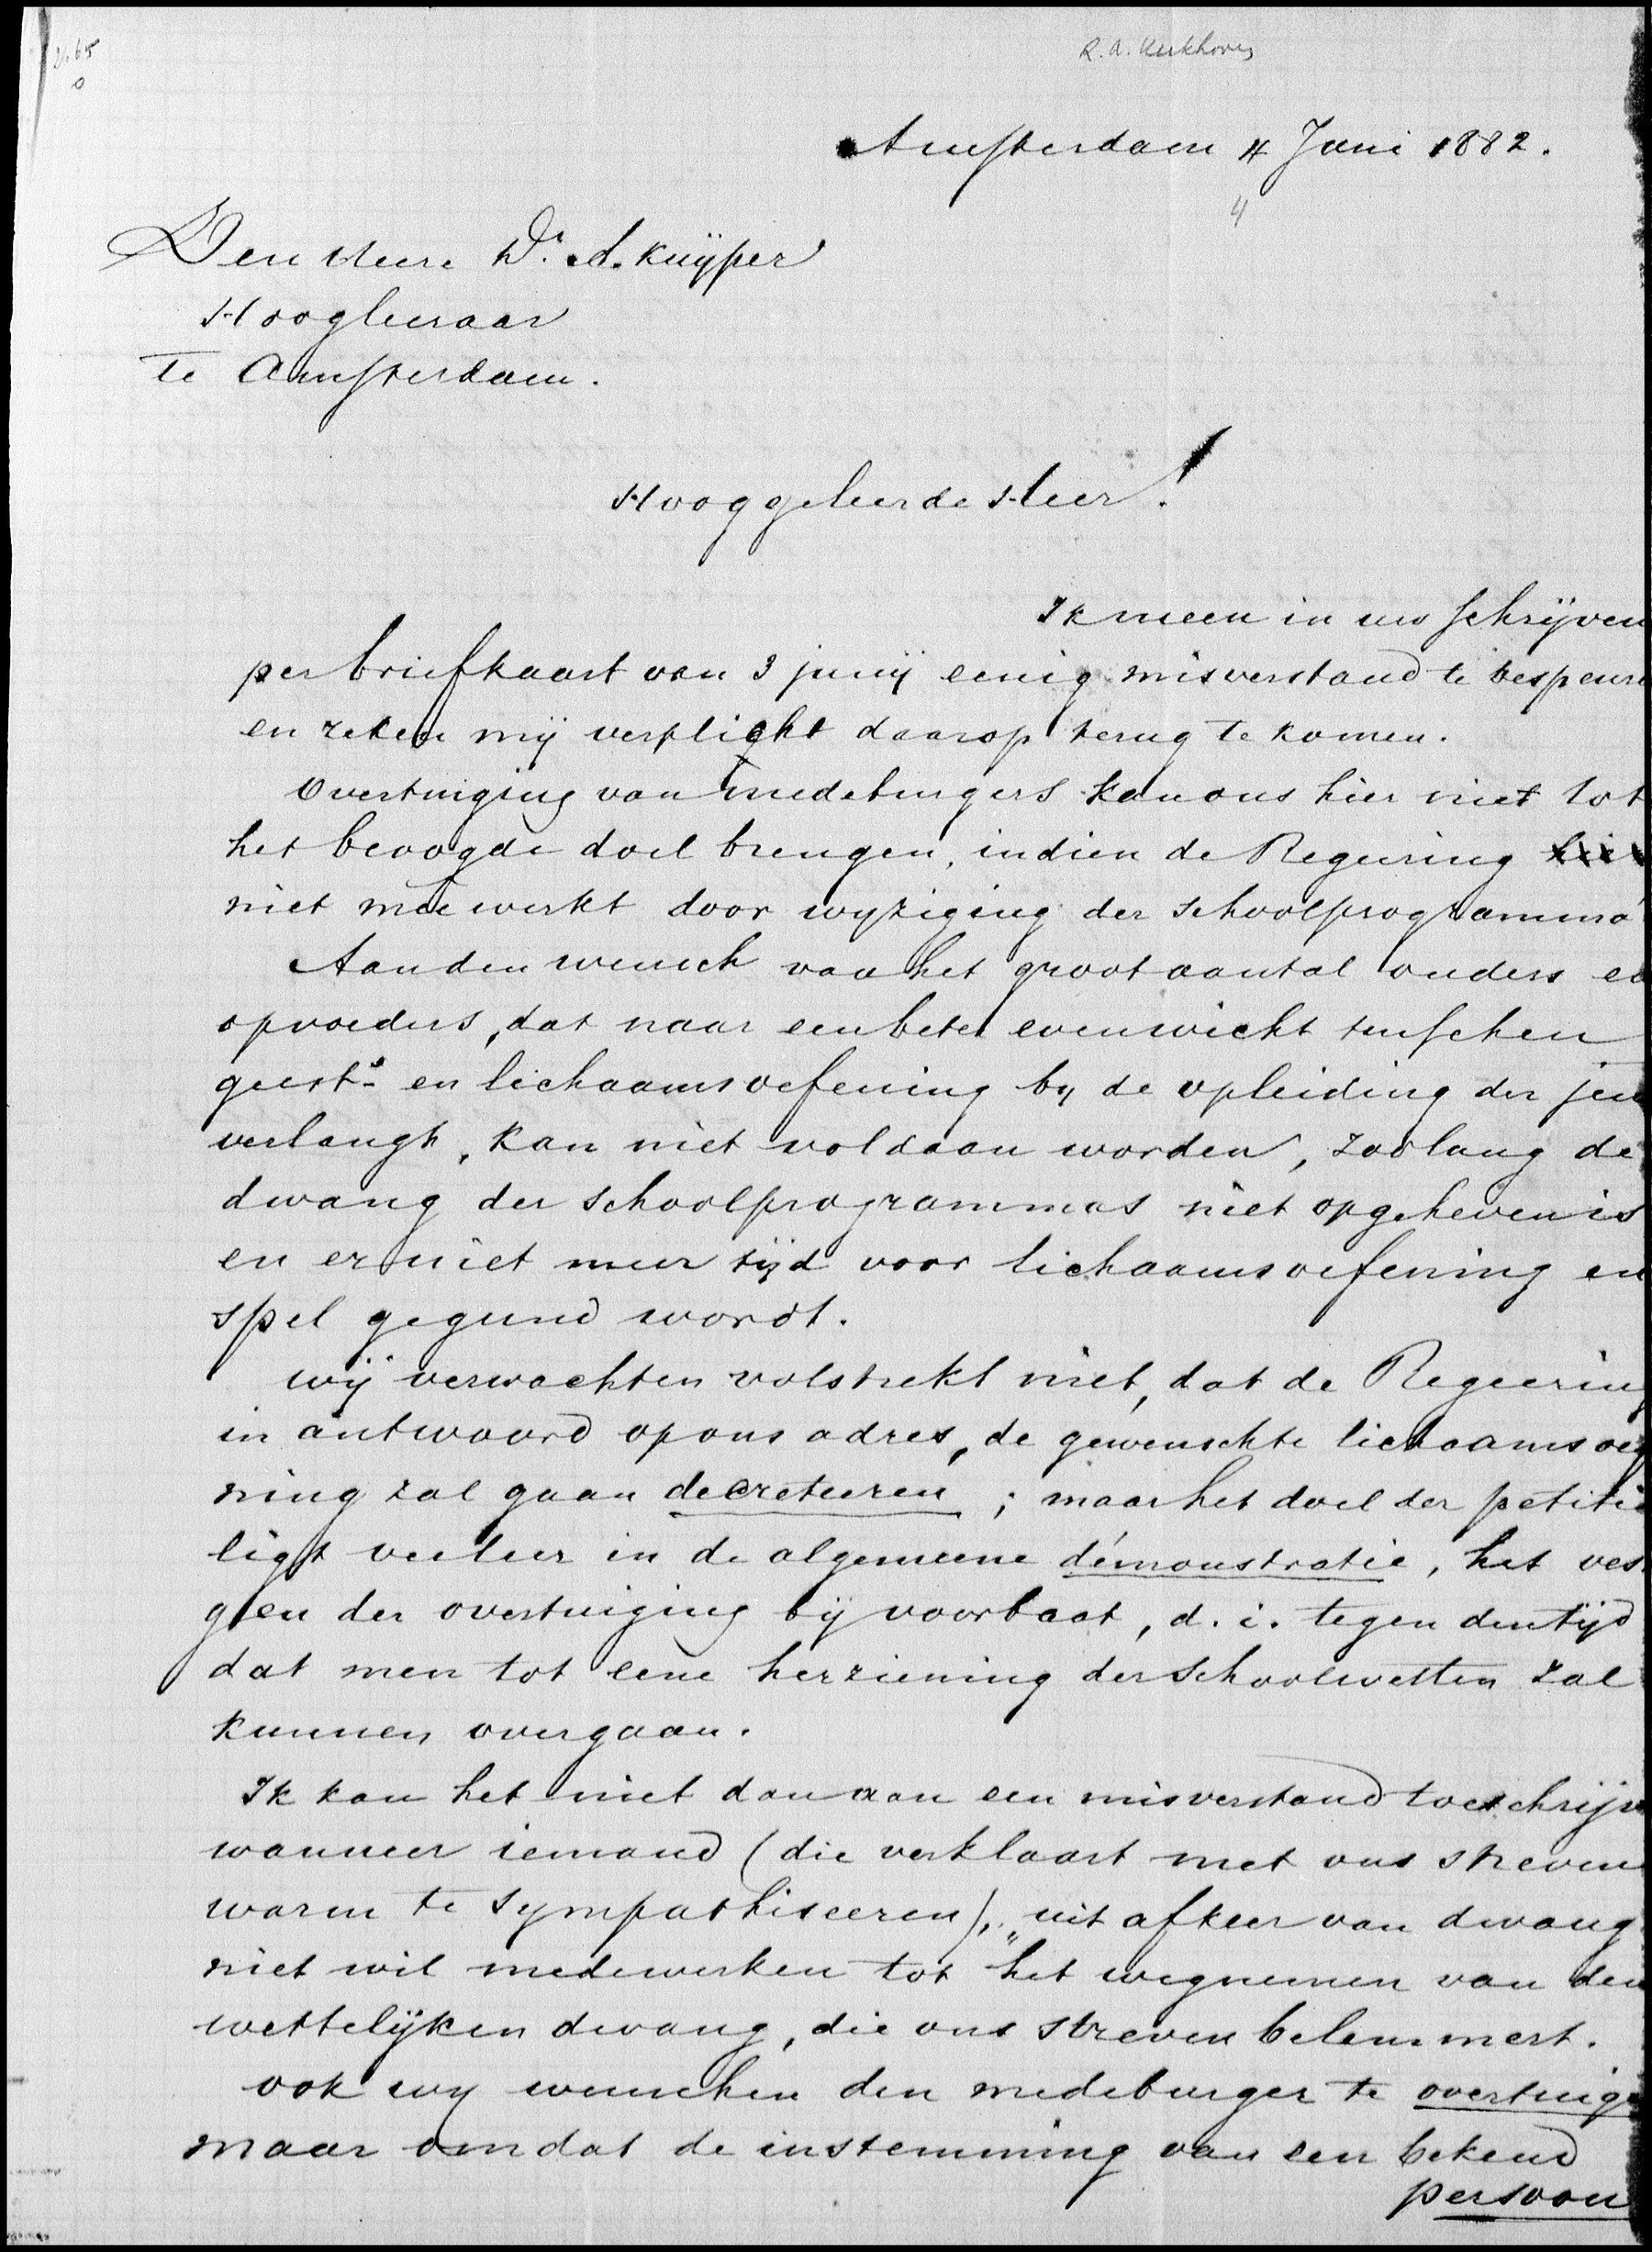 R.A. Kerkhoven
Amsterdam 4 Juni 1882.
4
Den Heere Dr. A. Kuijper
Hoogleeraar
te Amsterdam.
Hooggeleerde Heer!
Ik meen in uw schrijven
per briefkaart van 3 junij eenig misverstand te bespeure
en reken mij verplicht daarop terug te komen.
Overtuiging van medeburgers kan ons hier niet tot
het beoogde doel brengen, indien de Regeering
niet mee werkt door wyziging der schoolprogramma
Aan den wensch van het groot aantal ouders en
opvoeders, dat naar een beter evenwicht tusschen
geest- en lichaamsoefening by de opleiding der jeu
verlangt, kan niet voldaan worden, zoolang de
dwang der schoolprogrammas niet opgeheven is
en er niet meer tijd voor lichaamsoefening en
spel gegund wordt.
wij verwachten volstrekt niet, dat de Regeering
in antwoord op ons adres, de gewenschte lichaamsoef
ning zal gaan decreteeren; maar het doel der petitie
ligt veeleer in de algemeene démonstratie, het ves
gen der overtuiging bij voorbaat, d. i. tegen den tijd
dat men tot eene herziening der schoolwetten zal
kunnen overgaan.
Ik kan het niet dan aan een misverstand toeschrijv
wanneer iemand (die verklaart met ons streven
warm te sympathiseeren), "uit afkeer van dwang
niet wil medewerken tot het wegnemen van den
wettelijken dwang, die ons streven belemmert.
ook wy wenschen den medeburger te overtuige
maar omdat de instemming van een bekend
persoon